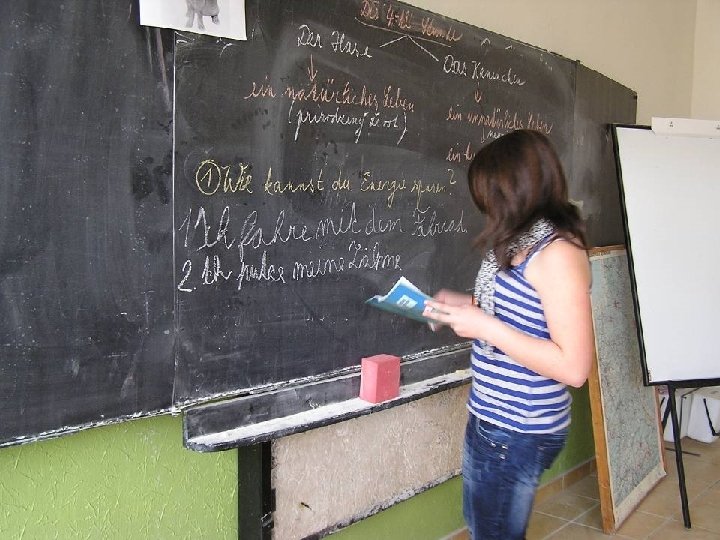 Die 4-te Stunde
Der Hase
Das Kaninchen
ein natürliches Leben
ein unnatürliches Leben
(prirodzený život)
ein
① Wie kannst du Energie sparen?
1 Ich fahre mit dem Fahrrad
2. Ich putze meine Zähne